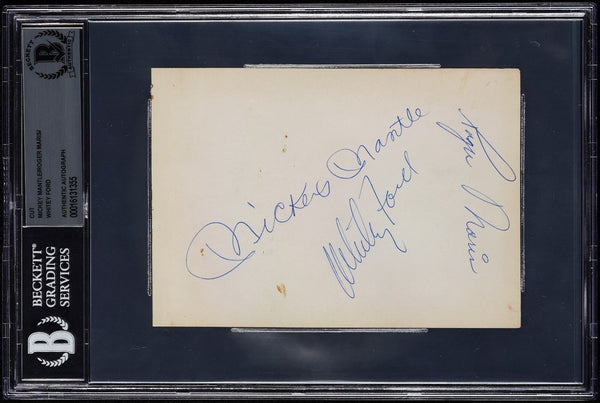 BECKETT
AUTHENTIC
CUT
MICKEY MANTLE/ROGER MARIS/
WHITEY FORD
AUTHENTIC AUTOGRAPH
00016131355
BECKETT
GRADING
SERVICES
B
Mickey Mantle
Whitey Ford
Roger Maris